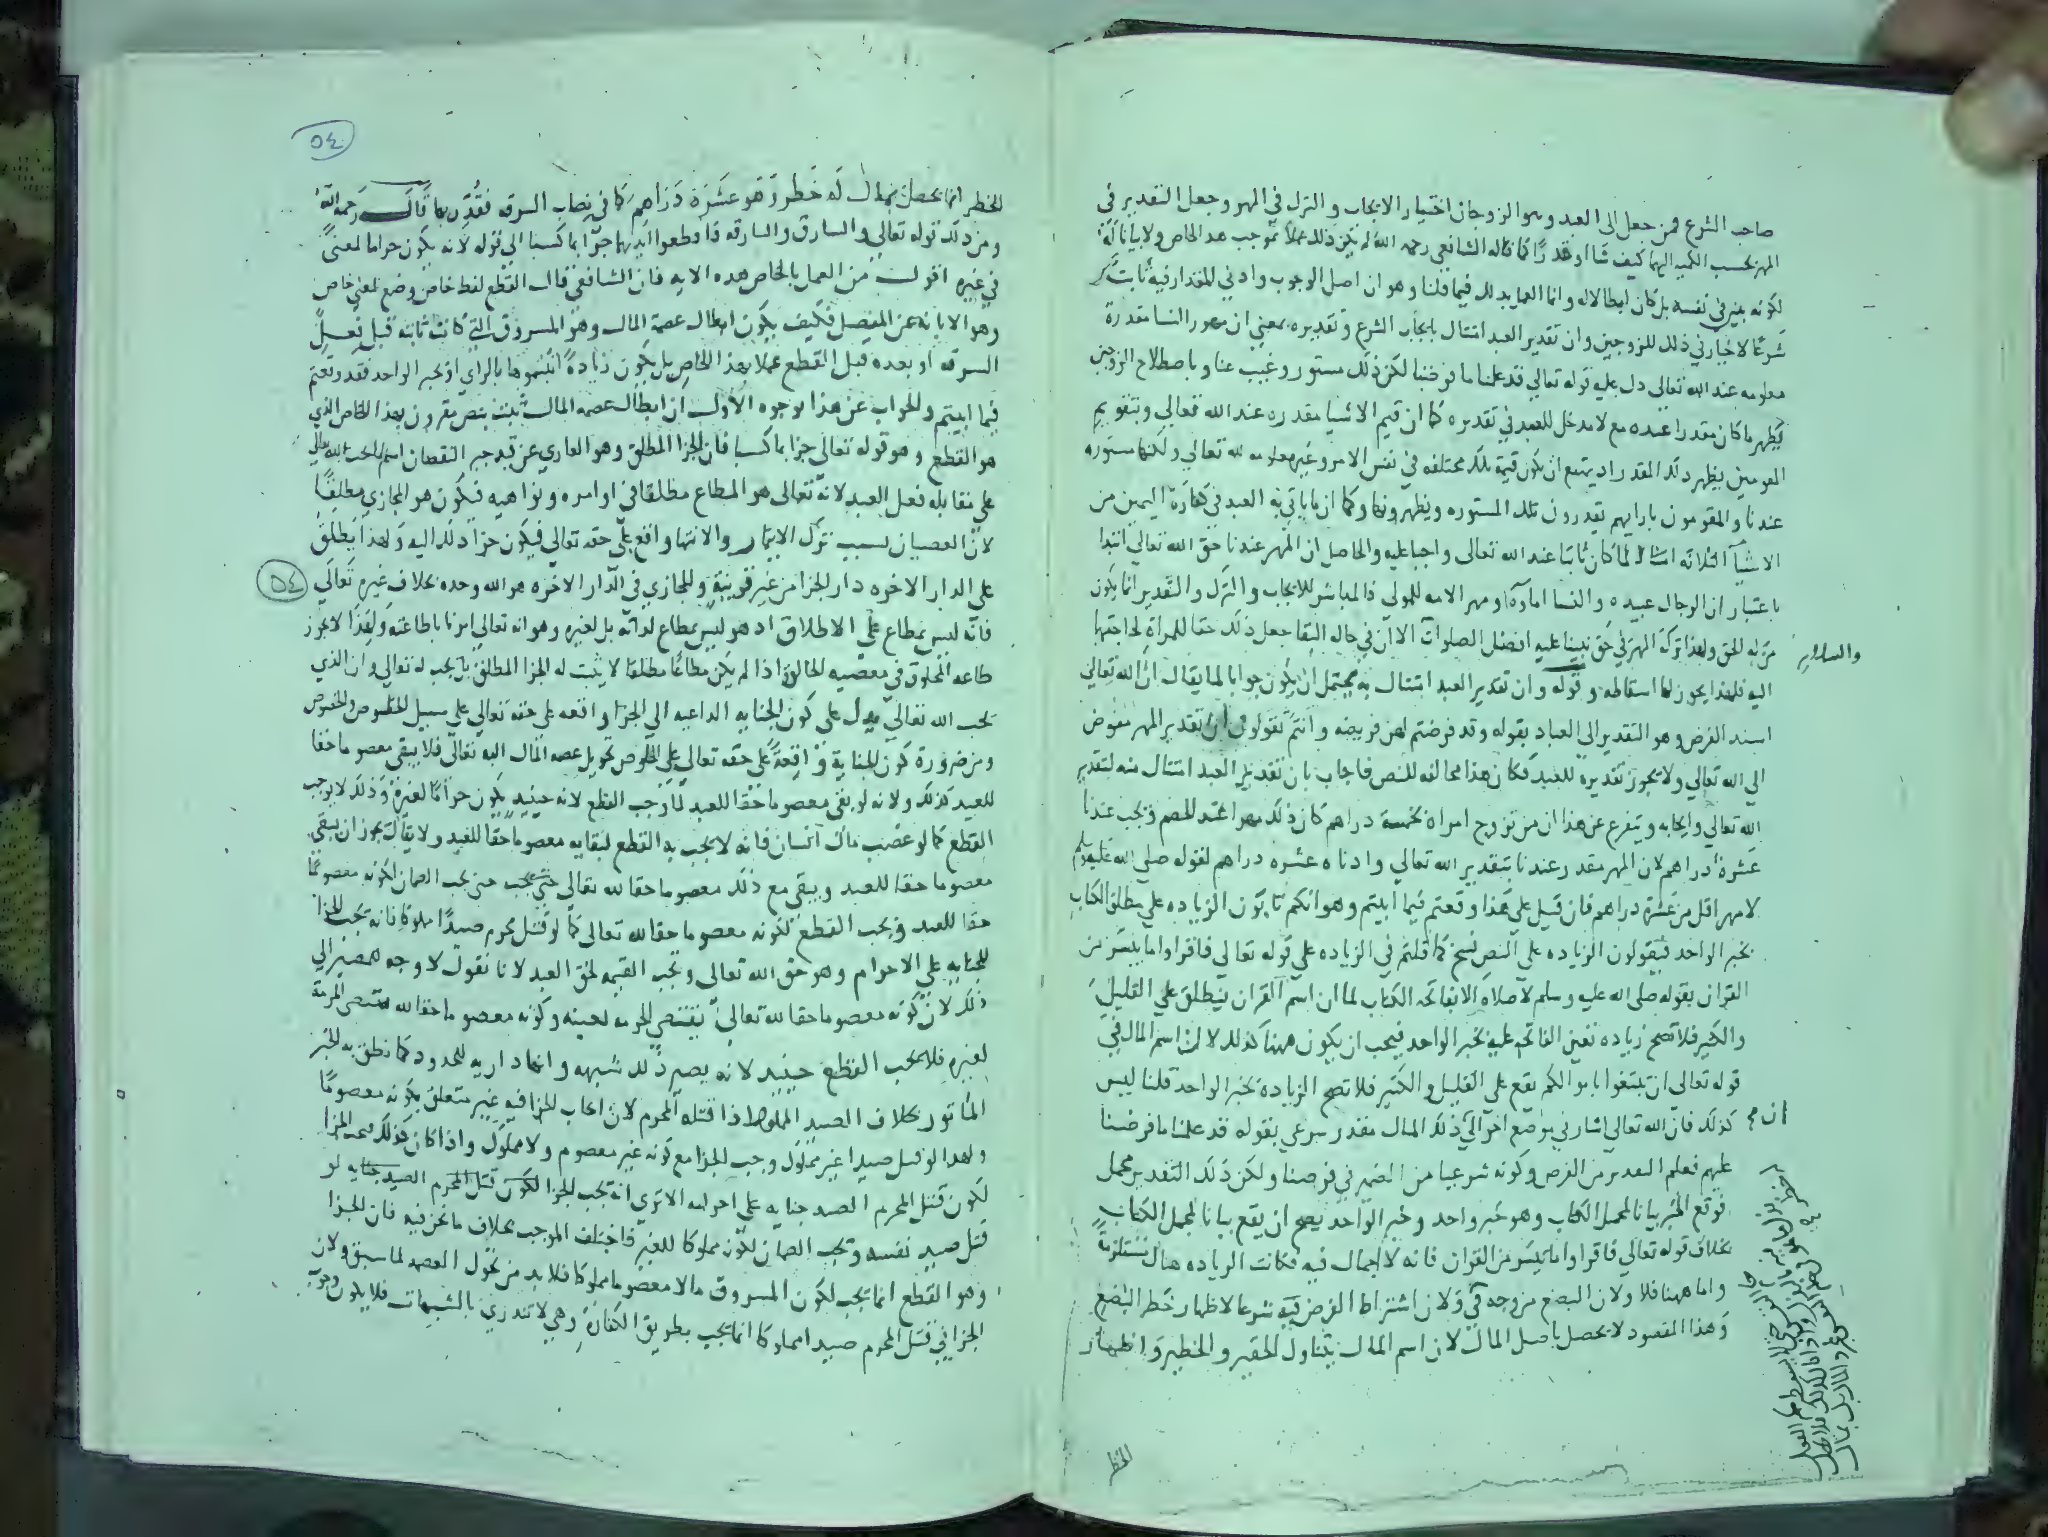 صاحب الشرع فمن جعل الى العبد وهو الزوجان اختيار الايجاب والترك في المهر وجعل التقدير في
المهر بحسب الكمية اليهما كيف شاا وقدرا كما قاله الشافعي رحمه الله لم يكن ذلك عملا بموجب هذا الخاص ولا بيانا له
لكونه بينا في نفسه بل كان ابطالا له وانما العمل بذلك فيما قلنا وهو ان اصل الوجوب وادني المقدار فيه ثابت
شرعا لا خيار في ذلك للزوجين وان تقدير العبد امتثال بايجاب الشرع وتقديره بمعني ان مهور النسا مقدرة
معلومه عند الله تعالى دل عليه قوله تعالي قد علمنا ما فرضنا لكن ذلك مستور وغيب عنا وباصطلاح الزوجين
يظهر ما كان مقدرا عنده مع لا مدخل للعبد في تقديره كما ان قيم الاشيا مقدره عند الله تعالي وبتقويم
المقومين يظهر ذلك المقدر اذ يمتنع ان يكون قيمة مختلفه في نفس الامر وغير معلومه لله تعالي ولكنها مستوره
عندنا والمقومون بارايهم يقدرون تلك المستوره ويظهرونها وكما ان ما ياتي به العبد في كفارة اليمين من
الاشيا الثلاثه امتثال لما كان ثابتا عند الله تعالى واجبا عليه والحاصل ان المهر عندنا حق الله تعالي ابتدا
باعتبار ان الرجال عبيده والنسا اماوه ومهر الامه للمولي فالمباشر للايجاب والترك والتقدير انما يكون
من له الحق ولهذا ترك المهر في حق نبينا عليه افضل الصلوات الا ان في حاله البقا جعل ذلك حقا للمراة لحاجتها
والسلام
اليه فلهذا يجوز لها اسقاطه وقوله وان تقدير العبد امتثال به يحتمل ان يكون جوابا لما يقال ان الله تعالي
اسند الفرض وهو التقدير الى العباد بقوله وقد فرضتم لهن فريضه وانتم تقولون ان تقدير المهر مفوض
الى الله تعالي ولا يجوز تقديره للعبد فكان هذا مخالفه للنص فاجاب بان تقدير العبد امتثال منه لتقدير
الله تعالي وايجابه ويتفرع عن هذا ان من تزوج امراة بخمسة دراهم كان ذلك مهرا عند الخصم ويجب عندنا
عشرة دراهم لان المهر مقدر عندنا بتقدير الله تعالي وادناه عشره دراهم لقوله صلى الله عليه وسلم
لا مهر اقل من عشرة دراهم فان قيل على هذا وقعتم فيما ابيتم وهو انكم تابون الزياده علي مطلق الكتاب
بخبر الواحد فيقولون الزياده على النص نسخ كما قلتم في الزياده على قوله تعالى فاقراوا ما تيسر من
القران بقوله صلى الله عليه وسلم لا صلاة الا بفاتحه الكتاب لما ان اسم القران ينطلق على القليل
والكثير فلا تصح زياده تعين الفاتحه عليه بخبر الواحد فيجب ان يكون ههنا كذلك لان اسم المال في
قوله تعالى ان تبتغوا باموالكم يقع على القليل والكثير فلا تصح الزيادة بخبر الواحد قلنا ليس
كذلك فان الله تعالى اشار في موضع اخر الى ان ذلك المال مقدر شرعي بقوله قد علمنا ما فرضنا
عليهم فعلم التقدير من الفرض وكونه شرعيا من الضمير في فرضنا ولكن ذلك التقدير مجمل
فوقع الخبر بيانا لمجمل الكتاب وهو خبر واحد وخبر الواحد يصح ان يقع بيانا لمجمل الكتاب
بخلاف قوله تعالي فاقراوا ما تيسر من القران فانه لا اجمال فيه فكانت الزياده هناك مستلزمة
واما ههنا فلا ولان البضع من وجه ولان اشتراط الفرض فيه شرعا لاظهار خطر البضع
وهذا المقصود لا يحصل باصل المال لان اسم المال يتناول الحقير والخطير واظهار
الخطر
٥٤
الخطر انما يحصل بمال له خطر وهو عشرة دراهم كما في نصاب السرقه فقدر بها قال رحمه الله
ومن ذلك قوله تعالي والسارق والسارقه فاقطعوا ايديهما جزا بما كسبا الى قوله لانه يكون حراما لمعني
في غيره اقول من العمل بالخاص هذه الايه فان الشافعي قال القطع لفظ خاص وضع لمعني خاص
وهو الابانه عن المفصل فكيف يكون ابطال عصمة المال وهو المسروق التي كانت ثابته قبل فعل
السرقه او بعده قبل القطع عملا بهذا الخاص بل يكون زيادة اثبتموها بالراي او بخبر الواحد فقد وقعتم
فيما ابيتم والجواب عن هذا بوجوه الاول ان ابطال عصمه المال ثبت بنص مقرون بهذا الخاص الذي
هو القطع وهو قوله تعالى جزا بما كسبا فان الجزا المطلق وهو العاري عن قيد جبر النقصان اسم لما يجب لله تعالي
على مقابله فعل العبد لانه تعالى هو المطاع مطلقا في اوامره ونواهيه فيكون هو المجازي مطلقا
لان العصيان بسبب ترك الايتمار والانتها واقع على حقه تعالي فيكون جزا ذلك اليه ولهذا يطلق
على الدار الاخره دار الجزا من غير قرينة والمجازي في الدار الاخره هو الله وحده بخلاف غيره تعالى
٥٤
فانه ليس بمطاع علي الاطلاق اذ هو ليس بمطاع لذاته بل لغيره وهو انه تعالي امرنا باطاعته ولهذا لا يجوز
طاعه المخلوق في معصيه الخالق واذا لم يكن مطاعا مطلقا لا يثبت له الجزا المطلق بل يجب له تعالي وان الذي
يجب الله تعالي يدل على كون الجنايه الداعيه الى الجزا واقعه على حقه تعالي على سبيل الخلوص والخصوص
ومن ضرورة كون الجناية واقعة على حقه تعالي على الخلوص تحويل عصمه المال اليه تعالى فلا يبقى معصوما حقا
للعبد كذلك ولانه لو بقي معصوما حقا للعبد لما وجب القطع لانه حينيذ يكون حراما لغيره وذلك لا يوجب
القطع كما لو غصب مال انسان فانه لا يجب به القطع لبقايه معصوما حقا للعبد ولا يقال يجوز ان يبقي
معصوما حقا للعبد ويبقي مع ذلك معصوما حقا لله تعالى حتي يجب الضمان لكونه معصوما
حقا للعبد ويجب القطع لكونه معصوما حقا لله تعالى كما لو قتل محرم صيدا مملوكا فانه تجب الجزا
للجنايه على الاحرام وهو حق الله تعالى وتجب القيمه لحق العبد لانا نقول لا وجه للمصير الي
ذلك لان كونه معصوما حقا لله تعالى يقتضي الحرمه لعينه وكونه معصوما حقا لله يقتضي الحرمة
لغيره فلا يجب القطع حينيذ لانه يصير ذلك شبهه وانها داريه للحدود كما نطق به الخبر
الماثور بخلاف الصيد المملوك اذا قتله المحرم لان ايجاب الجزا فيه غير متعلق بكونه معصوما
ولهذا لو قتل صيدا غير مملوك وجب الجزا مع كونه غير معصوم ولا مملوك واذا كان كذلك يجب الجزا
لكون قتل المحرم الصيد جنايه على احرامه الا ترى انه يجب الجزا لكون قتل المحرم الصيد جنايه لو
قتل صيد نفسه وتجب الضمان لكونه مملوكا للغير فاختلف الموجب بخلاف ما نحن فيه فان الجزا
وهو القطع انما يجب لكون المسروق مالا معصوما مملوكا فلا بد من تحول العصمه لما سبق ولان
الجزا في قتل المحرم صيدا مملوكا انما يجب بطريق الكفارة وهي لا تندري بالشبهات فلا يكون وجوب